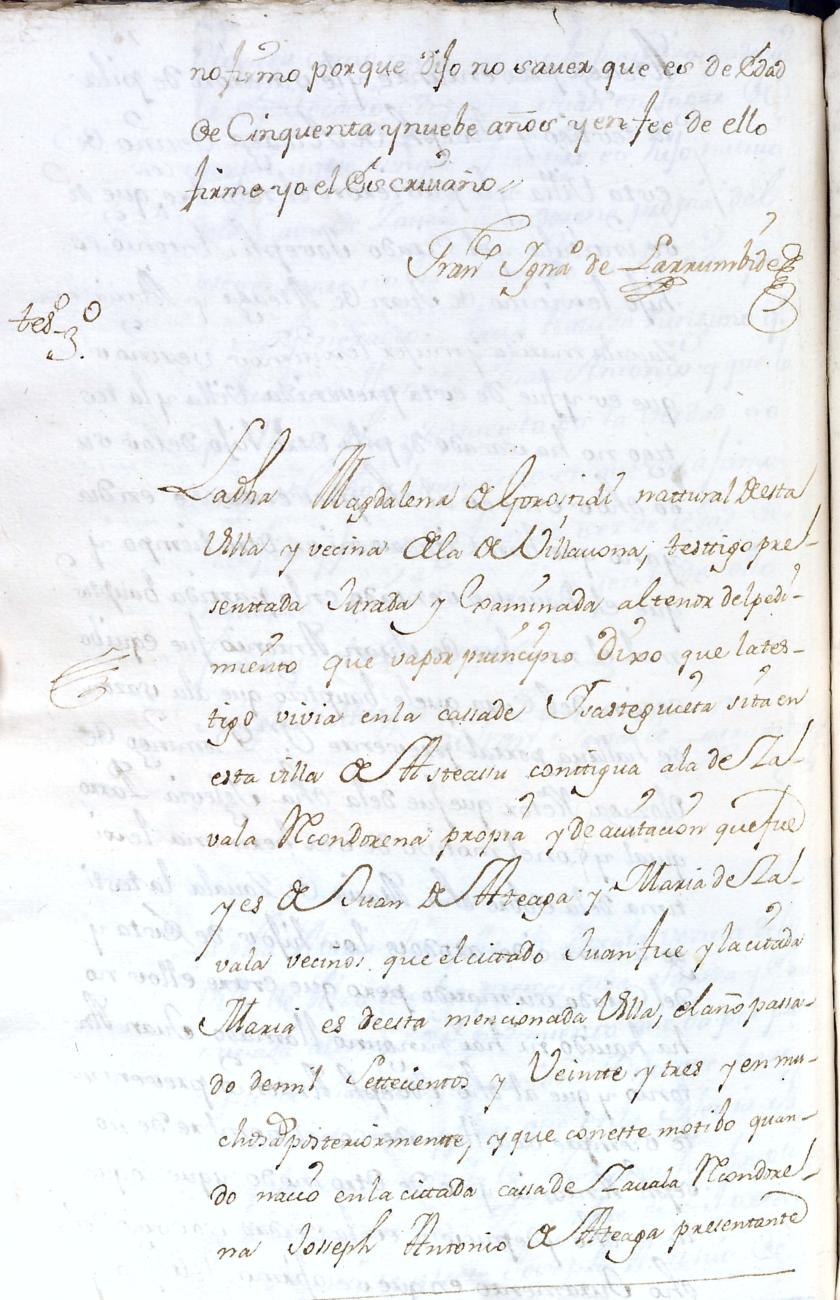 no firmo porque dijo no saver que es de Edad
de Cinquenta y nuebe años y en fee de ello
firme yo el Escrivano
Fran.co Ygna.o de Larrumbide
tes.o 3.o
La dha Magdalena de natural de esta
Villa y vecina de la de Villavona, testtigo pre-
senttada Jurada y Examinada al tenor del pedi-
miento que va por principio Dixo que la tes-
tigo vivia en la cassa de Ysastegui eta sita en
esta villa de Asteassu conttigua a la de Za-
vala Recondorena propia y de avitacion que fue
y es de Juan de Atteaga y Maria de Za-
vala vecinos que el cittado Juan fue y la citada
Maria es de esta mencionada Villa, el año passa-
do de mil Settecientos y Veintte y tres y en mu-
chos posteriormentte, y que con este motibo quan-
do nacio en la cittada cassa de Zavala Recondore-
na Josseph Antonio de Atteaga presentante